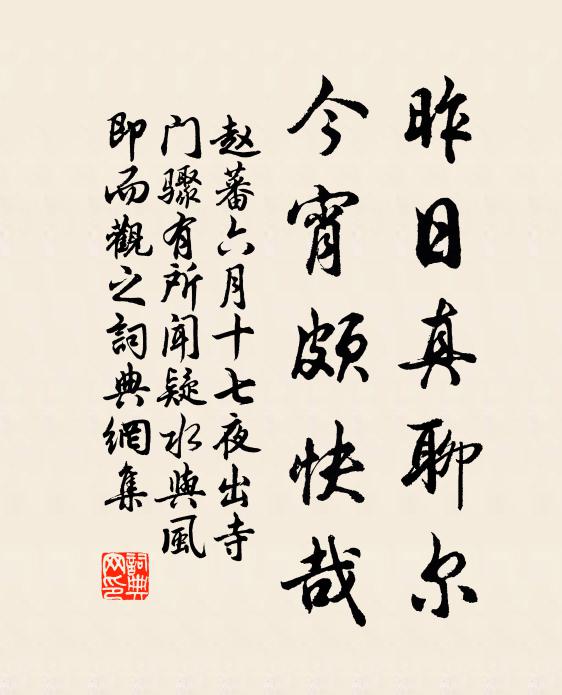 昨日真聊尔
今宵颇快哉
赵蕃六月十七夜出寺
门骤有所闻疑水与風
即而觀之詞典網集
詞典网印